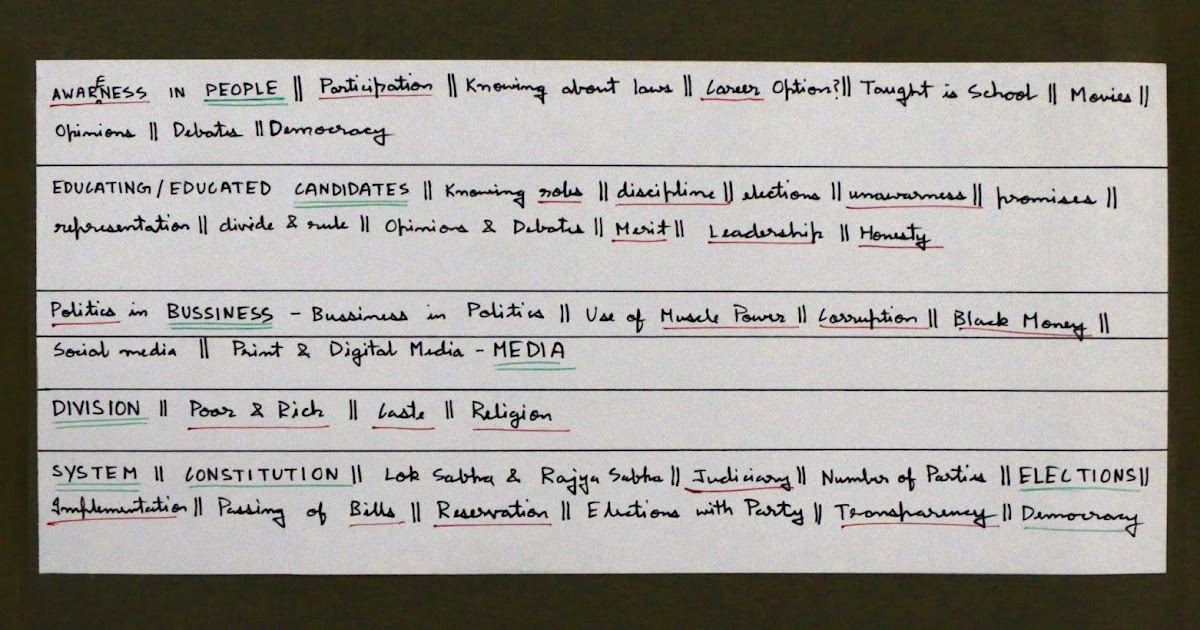 AWARENESS IN PEOPLE || Participation || Knowing about laws || Career Option? || Taught is School || Movies ||
Opinions || Debates || Democracy
EDUCATING / EDUCATED CANDIDATES || Knowing roles || discipline || elections || unawarness || promises ||
representation || divide & rule || Opinions & Debates || Merit || Leadership || Honesty
Politics in BUSSINESS - Bussiness in Politics || Use of Muscle Power || Corruption || Black Money ||
Social media || Print & Digital Media - MEDIA
DIVISION || Poor & Rich || Caste || Religion
SYSTEM || CONSTITUTION || Lok Sabha & Rajya Sabha || Judiciary || Number of Parties || ELECTIONS ||
Implementation || Passing of Bills || Reservation || Elections with Party || Transparency || Democracy